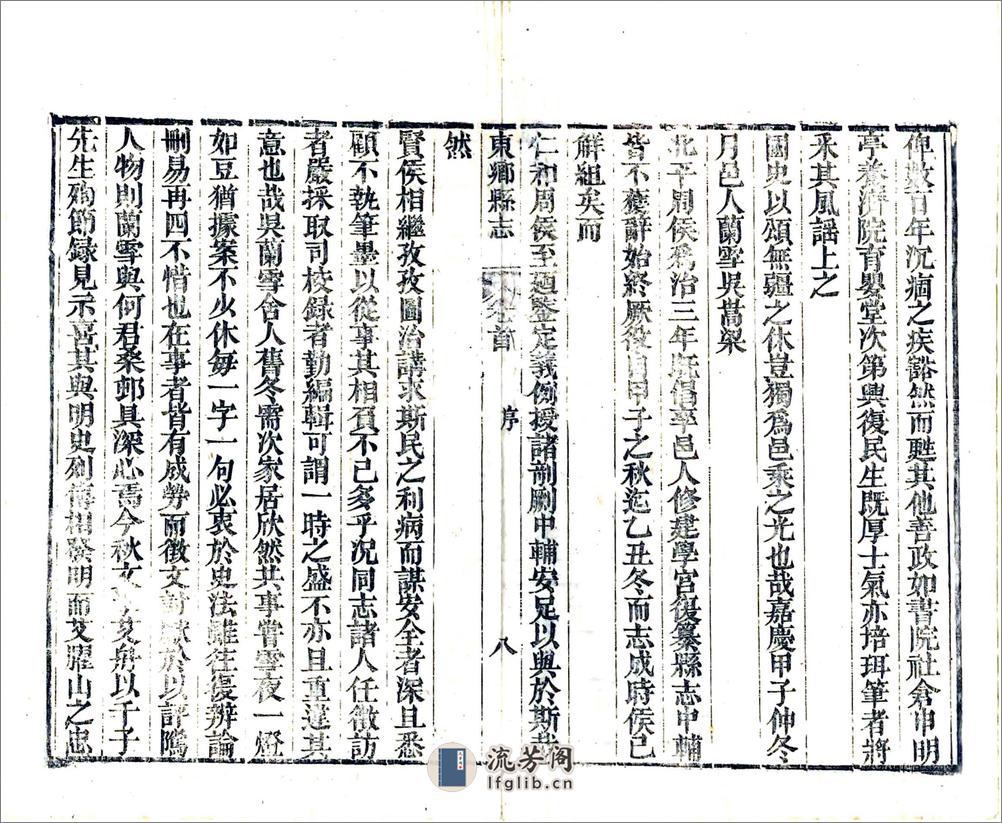 俾數百年沉痼之疾豁然而甦其他善政如書院社倉申明
亭養濟院育嬰堂次第興復民生既厚士氣亦培珥筆者將
采其風謡上之
國史以頌無疆之休豈獨爲邑乘之光也哉嘉慶甲子仲冬
月邑人蘭雪吳嵩梁
北平周侯爲治三年旣倡率邑人修建學宮復纂縣志中輔
皆不獲辭始終厥役自甲子之秋迄乙丑冬而志成時侯已
解組矣而
仁和周侯至廼鑒定義例援諸剞劂中輔安足以與於斯哉
東鄉縣志
卷首
序
八
然
賢侯相繼孜孜圖治講求斯民之利病而謀安全者深且悉
顧不執筆墨以從事其相負不已多乎況同志諸人任徵訪
者嚴採取司校録者勤編輯可謂一時之盛不亦且重違其
意也哉吳蘭雪舍人舊冬需次家居欣然共事嘗雪夜一燈
如豆猶據案不少休每一字一句必衷於史法雖往復辨論
刪易再四不惜也在事者皆有成勞而徵文考獻於以評隲
人物則蘭雪與何君桑邨具深心焉今秋文
艾舟以千子
先生殉節録見示喜其與明史列傳相發明而艾耀山之忠
流芳阁
lfglib.cn